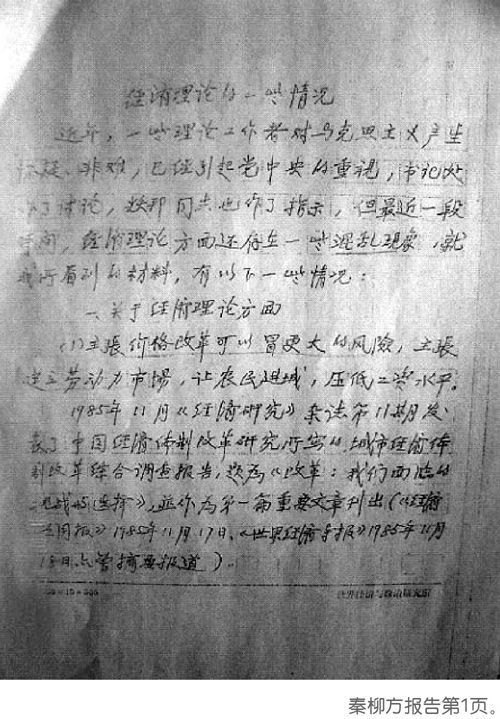 经济理论的一些情况
近年，一些理论工作者对马克思主义产生
怀疑、非难，已经引起党中央的重视，书记处
作了讨论，耀邦同志也作了指示，但最近一段
时间，经济理论方面还存在一些混乱现象，就
我所看到的材料，有以下一些情况：
一、关于经济理论方面
(1)主张价格改革可以冒更大的风险，主张
建立劳动力市场，让农民进城，压低工资水平。
1985年11月《经济研究》杂志第11期发
表了中国经济体制改革研究所写的城市经济体
制改革综合调查报告，题为《改革：我们面临的
挑战与选择》，并作为第一篇重要文章刊出（《经济
周报》1985年11月17日、《世界经济导报》1985年11月
18日点管摘要报道）。
20×15=300
世界经济与政治研究所
秦柳方报告第1页。